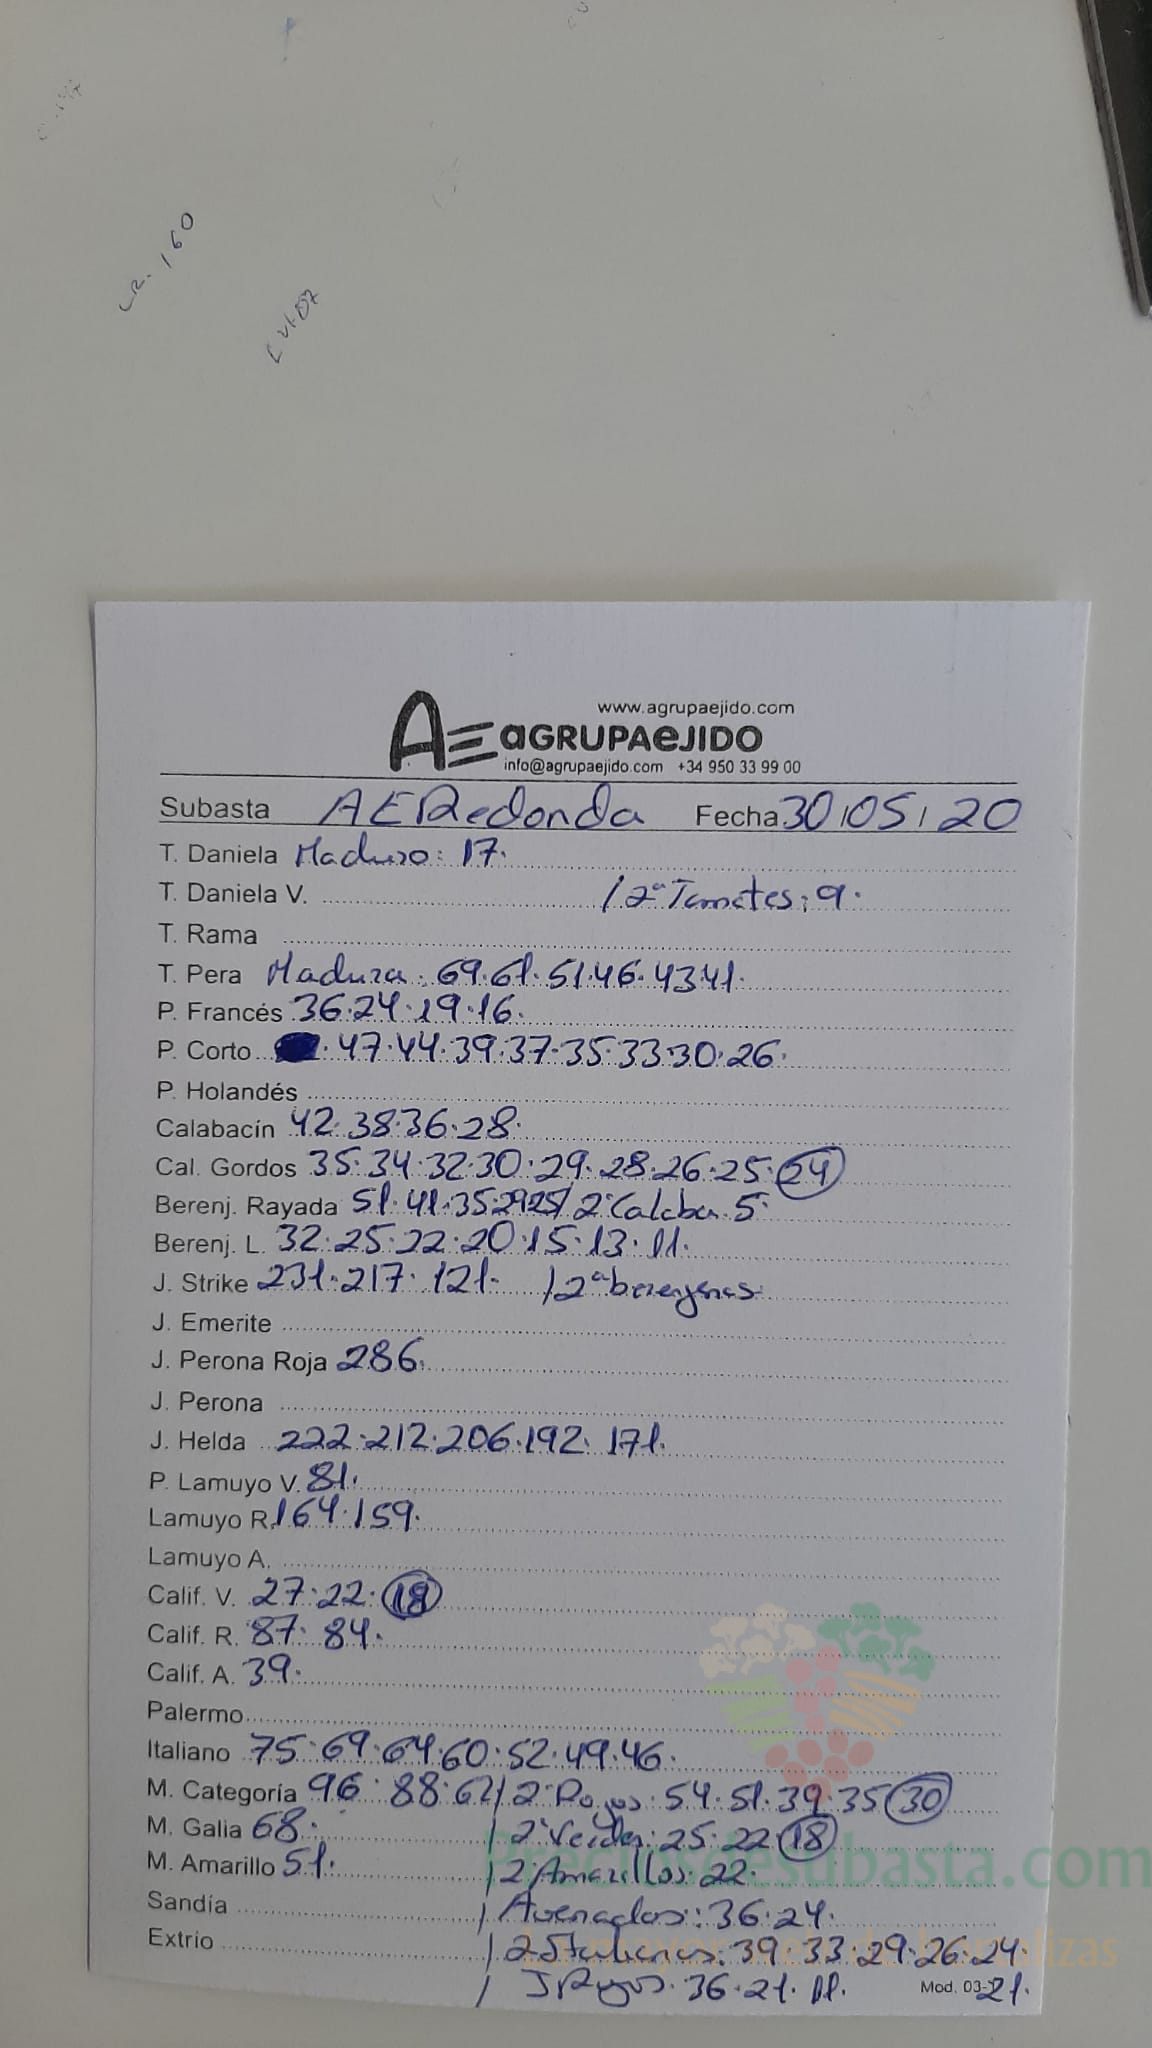 LR. 160
www.agrupaejido.com
AE aGRUPAeJIDO
info@agrupaejido.com +34 950 33 99 00
Subasta AERedonda Fecha 30/05/20
T. Daniela Maduro: 17.
T. Daniela V. / 2ª Tomates: 9.
T. Rama
T. Pera Madura: 69.61.51.46.43.41.
P. Francés 36.24.19.16.
P. Corto .47.44.39.37.35.33.30.26.
P. Holandés
Calabacín 42.38.36.28.
Cal. Gordos 35.34.32.30.29.28.26.25.24
Berenj. Rayada 51.41.35.29.25/2ª Calaba. 5.
Berenj. L. 32.25.22.20.15.13.11.
J. Strike 231.217.121. /2ª berenjenas
J. Emerite
J. Perona Roja 286.
J. Perona
J. Helda 222.212.206.192.171.
P. Lamuyo V. 81.
Lamuyo R. 164.159.
Lamuyo A.
Calif. V. 27.22.18
Calif. R. 87.84.
Calif. A. 39.
Palermo
Italiano 75.69.64.60.52.49.46.
M. Categoría 96.88.62/2ª Rojos: 54.51.39.35 30
M. Galia 68. /2ª Verdes: 25.22 18
M. Amarillo 51. /2 Amarillos: 22.
Sandía / Asenados: 36.24.
Extrio /2 Italianos: 39.33.29.26.24.
/ J Rojos. 36.21.11. Mod. 03-21.
Preciosdesubasta.com